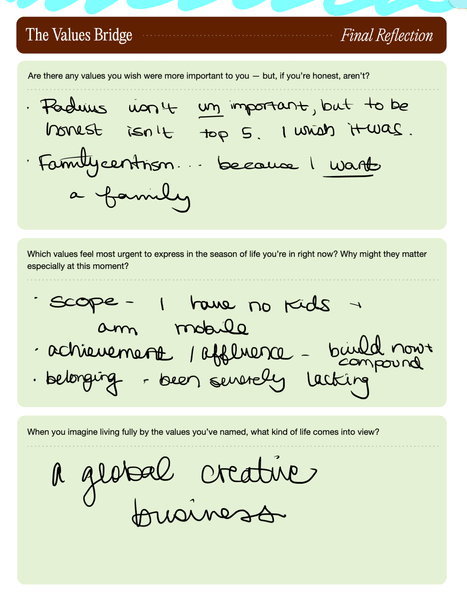 The Values Bridge Final Reflection
Are there any values you wish were more important to you — but, if you're honest, aren't?
· Radius isn't un important, but to be
honest isn't top 5. I wish it was.
· Familycentrism... because I want
a family
Which values feel most urgent to express in the season of life you're in right now? Why might they matter
especially at this moment?
· scope – I have no kids +
am mobile
· achievement / affluence – build now +
compound
· belonging - been severely lacking
When you imagine living fully by the values you've named, what kind of life comes into view?
A global creative
business